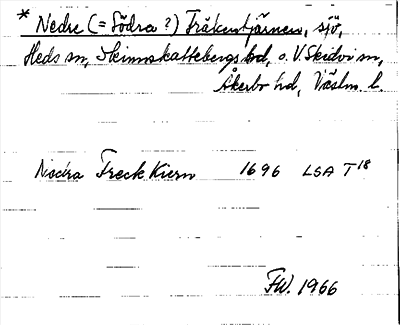 * Nedre (= Södra?) Fräkentjärnen, sjö,
Heds sn, Skinnskattebergs hd, o. V. Skedvi sn,
Åkerbo hd, Västm. l.
Nodra Freck Kiern 1696 LSA T 18
FW. 1966